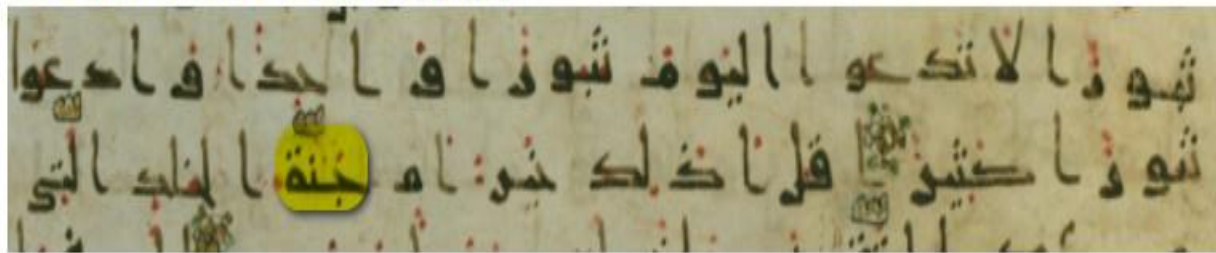 ثبورا لا تدعوا اليوم ثبورا واحدا وادعوا
ثبورا كثيرا قل اذلك خير ام جنة الخلد التي